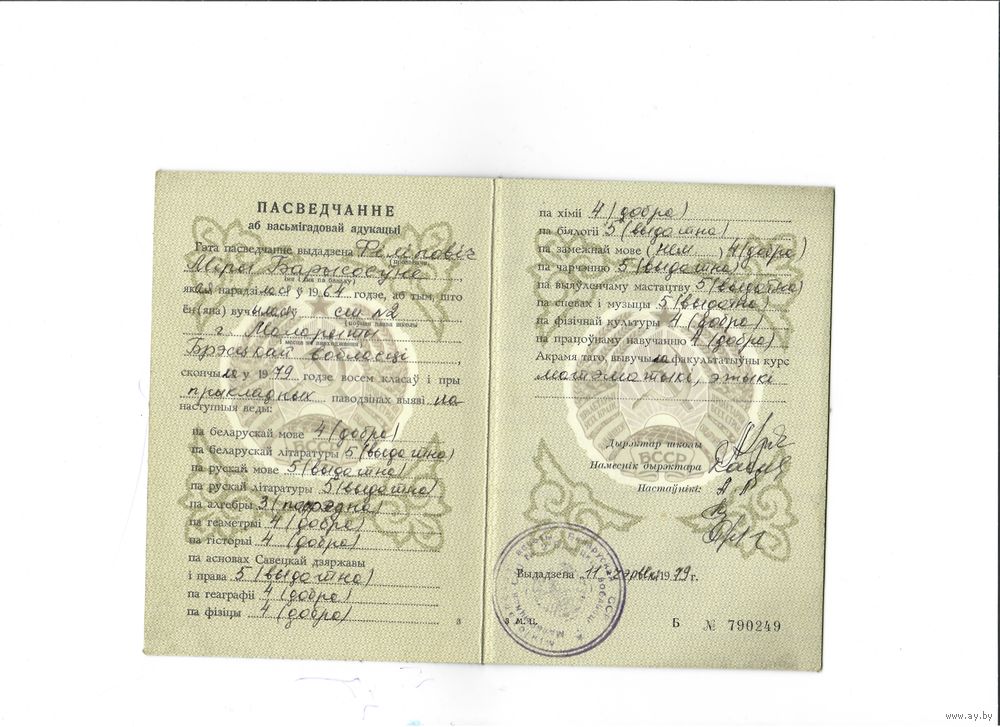 ПАСВЕДЧАННЕ
аб васьмігадовай адукацыі
Гэта пасведчанне выдадзена
Барысаўне
(імя і імя па бацьку)
якая нарадзілася ў 1964 годзе, аб тым, што
ён(яна) вуч сш №2
(поўная назва школы
г. Маларыты
месца яе знаходжання)
Брэсцкай вобласці,
скончыла ў 1979 годзе восем класаў і пры
прыкладных паводзінах выявіла
наступныя веды:
па беларускай мове 4 (добра)
па беларускай літаратуры 5 (выдатна)
па рускай мове 5 (выдатна)
па рускай літаратуры 5 (выдатна)
па алгебры 3
па геаметрыі 4 (добра)
па гісторыі 4 (добра)
па асновах Савецкай дзяржавы
і права 5 (выдатна)
па геаграфіі 4 (добра)
па фізіцы 4 (добра)
3
па хіміі 4 (добра)
па біялогіі 5 (выдатна)
па замежнай мове (ням.) 4 (добра)
па чарчэнню 5 (выдатна)
па выяўленчаму мастацтву 5 (выдатна)
па спевах і музыцы 5 (выдатна)
па фізічнай культуры 4 (добра)
па працоўнаму навучанню 4 (добра)
Акрамя таго, вывучыла факультатыўны курс
матэматыкі, этыкі
Дырэктар школы
Намеснік дырэктара
Настаўнікі:
БССР
БССР
Выдадзена 11 чэрвеня 1979 г.
М. П.
Б № 790249
www.ay.by